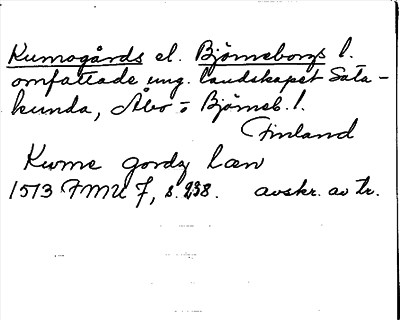 Kumogårds el. Björneborgs l.
omfattade ung. landskapet Sata-
kunda, Åbo- o Björneb. l.
Finland
Kwme gordz læn
1513 FMU 7, s. 238. avskr. av tr.